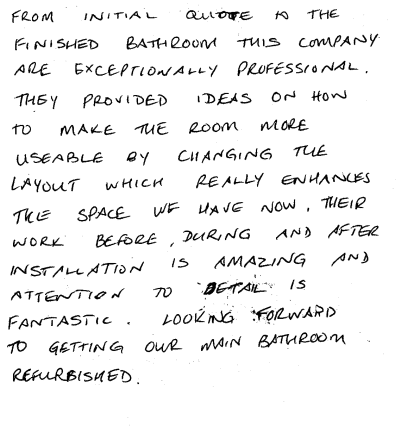 FROM INITIAL QUOTE TO THE
FINISHED BATHROOM THIS COMPANY
ARE EXCEPTIONALLY PROFESSIONAL.
THEY PROVIDED IDEAS ON HOW
TO MAKE THE ROOM MORE
USEABLE BY CHANGING THE
LAYOUT WHICH REALLY ENHANCES
THE SPACE WE HAVE NOW. THEIR
WORK BEFORE, DURING AND AFTER
INSTALLATION IS AMAZING AND
ATTENTION TO DETAIL IS
FANTASTIC. LOOKING FORWARD
TO GETTING OUR MAIN BATHROOM
REFURBISHED.